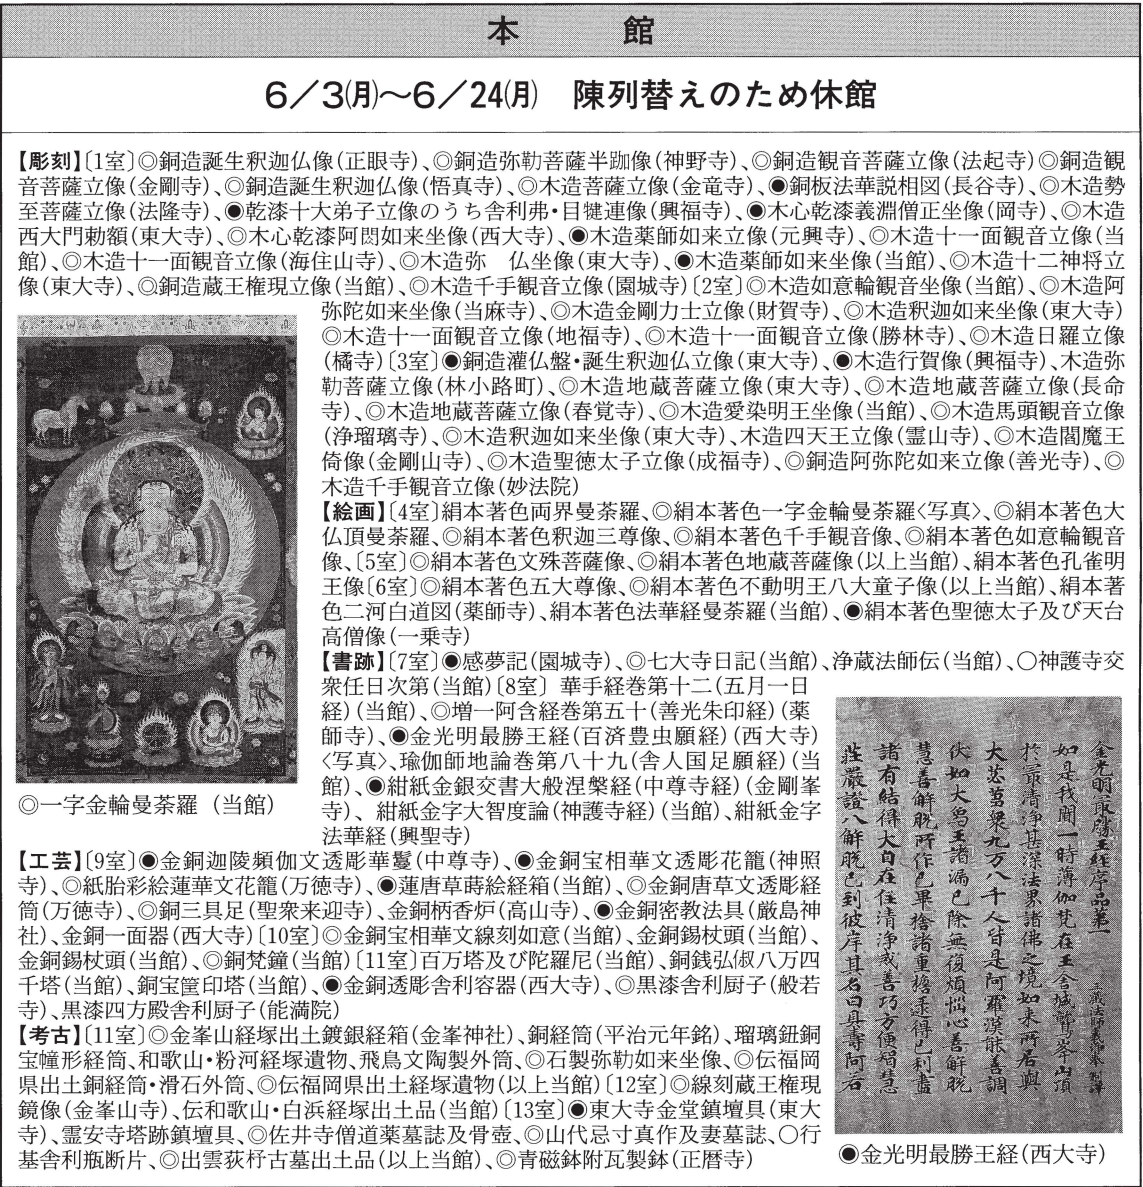 本館
6／3㈪～6／24㈪　陳列替えのため休館
【彫刻】〔1室〕◎銅造誕生釈迦仏像(正眼寺)、◎銅造弥勒菩薩半跏像(神野寺)、◎銅造観音菩薩立像(法起寺)◎銅造観
音菩薩立像(金剛寺)、◎銅造誕生釈迦仏像(悟真寺)、◎木造菩薩立像(金竜寺)、◉銅板法華説相図(長谷寺)、◎木造勢
至菩薩立像(法隆寺)、◉乾漆十大弟子立像のうち舎利弗・目犍連像(興福寺)、◉木心乾漆義淵僧正坐像(岡寺)、◎木造
西大門勅額(東大寺)、◎木心乾漆阿閦如来坐像(西大寺)、◉木造薬師如来立像(元興寺)、◎木造十一面観音立像(当
館)、◎木造十一面観音立像(海住山寺)、◎木造弥　仏坐像(東大寺)、◉木造薬師如来坐像(当館)、◎木造十二神将立
像(東大寺)、◎銅造蔵王権現立像(当館)、◎木造千手観音立像(園城寺)〔2室〕◎木造如意輪観音坐像(当館)、◎木造阿
弥陀如来坐像(当麻寺)、◎木造金剛力士立像(財賀寺)、◎木造釈迦如来坐像(東大寺)
◎木造十一面観音立像(地福寺)、◎木造十一面観音立像(勝林寺)、◎木造日羅立像
(橘寺)〔3室〕◉銅造灌仏盤・誕生釈迦仏立像(東大寺)、◉木造行賀像(興福寺)、木造弥
勒菩薩立像(林小路町)、◎木造地蔵菩薩立像(東大寺)、◎木造地蔵菩薩立像(長命
寺)、◎木造地蔵菩薩立像(春覚寺)、◎木造愛染明王坐像(当館)、◎木造馬頭観音立像
(浄瑠璃寺)、◎木造釈迦如来坐像(東大寺)、木造四天王立像(霊山寺)、◎木造閻魔王
倚像(金剛山寺)、◎木造聖徳太子立像(成福寺)、◎銅造阿弥陀如来立像(善光寺)、◎
木造千手観音立像(妙法院)
【絵画】〔4室〕絹本著色両界曼荼羅、◎絹本著色一字金輪曼荼羅〈写真〉、◎絹本著色大
仏頂曼荼羅、◎絹本著色釈迦三尊像、◎絹本著色千手観音像、◎絹本著色如意輪観音
像、〔5室〕◎絹本著色文殊菩薩像、◎絹本著色地蔵菩薩像(以上当館)、絹本著色孔雀明
王像〔6室〕◎絹本著色五大尊像、◎絹本著色不動明王八大童子像(以上当館)、絹本著
色二河白道図(薬師寺)、絹本著色法華経曼荼羅(当館)、◉絹本著色聖徳太子及び天台
高僧像(一乗寺)
【書跡】〔7室〕◉感夢記(園城寺)、◎七大寺日記(当館)、浄蔵法師伝(当館)、○神護寺交
衆任日次第(当館)〔8室〕華手経巻第十二(五月一日
経)(当館)、◎増一阿含経巻第五十(善光朱印経)(薬
師寺)、◉金光明最勝王経(百済豊虫願経)(西大寺)
〈写真〉、瑜伽師地論巻第八十九(舎人国足願経)(当
館)、◉紺紙金銀交書大般涅槃経(中尊寺経)(金剛峯
寺)、紺紙金字大智度論(神護寺経)(当館)、紺紙金字
法華経(興聖寺)
◎一字金輪曼荼羅（当館）
【工芸】〔9室〕◉金銅迦陵頻伽文透彫華鬘(中尊寺)、◉金銅宝相華文透彫花籠(神照
寺)、◎紙胎彩絵蓮華文花籠(万徳寺)、◉蓮唐草蒔絵経箱(当館)、◎金銅唐草文透彫経
筒(万徳寺)、◎銅三具足(聖衆来迎寺)、金銅柄香炉(高山寺)、◉金銅密教法具(厳島神
社)、金銅一面器(西大寺)〔10室〕◎金銅宝相華文線刻如意(当館)、金銅錫杖頭(当館)、
金銅錫杖頭(当館)、◎銅梵鐘(当館)〔11室〕百万塔及び陀羅尼(当館)、銅銭弘俶八万四
千塔(当館)、銅宝篋印塔(当館)、◉金銅透彫舎利容器(西大寺)、◎黒漆舎利厨子(般若
寺)、黒漆四方殿舎利厨子(能満院)
【考古】〔11室〕◎金峯山経塚出土鍍銀経箱(金峯神社)、銅経筒(平治元年銘)、瑠璃鈕銅
宝幢形経筒、和歌山・粉河経塚遺物、飛鳥文陶製外筒、◎石製弥勒如来坐像、◎伝福岡
県出土銅経筒・滑石外筒、◎伝福岡県出土経塚遺物(以上当館)〔12室〕◎線刻蔵王権現
鏡像(金峯山寺)、伝和歌山・白浜経塚出土品(当館)〔13室〕◉東大寺金堂鎮壇具(東大
寺)、霊安寺塔跡鎮壇具、◎佐井寺僧道薬墓誌及骨壺、◎山代忌寸真作及妻墓誌、○行
基舎利瓶断片、◎出雲荻杼古墓出土品(以上当館)、◎青磁鉢附瓦製鉢(正暦寺)
金光明最勝王経序品第一　三蔵法師義浄奉制譯
如是我聞一時薄伽梵在王舎城鷲峯山頂
於最清浄甚深法界諸佛之境如来所居與
大苾蒭衆九万八千人皆是阿羅漢能善調
伏如大象王諸漏已除無復煩惱心善解脱
慧善解脱所作已畢捨諸重擔逮得己利盡
諸有結得大自在住清浄戒善巧方便智慧
荘厳證八解脱已到彼岸其名曰具壽阿若
◉金光明最勝王経(西大寺)